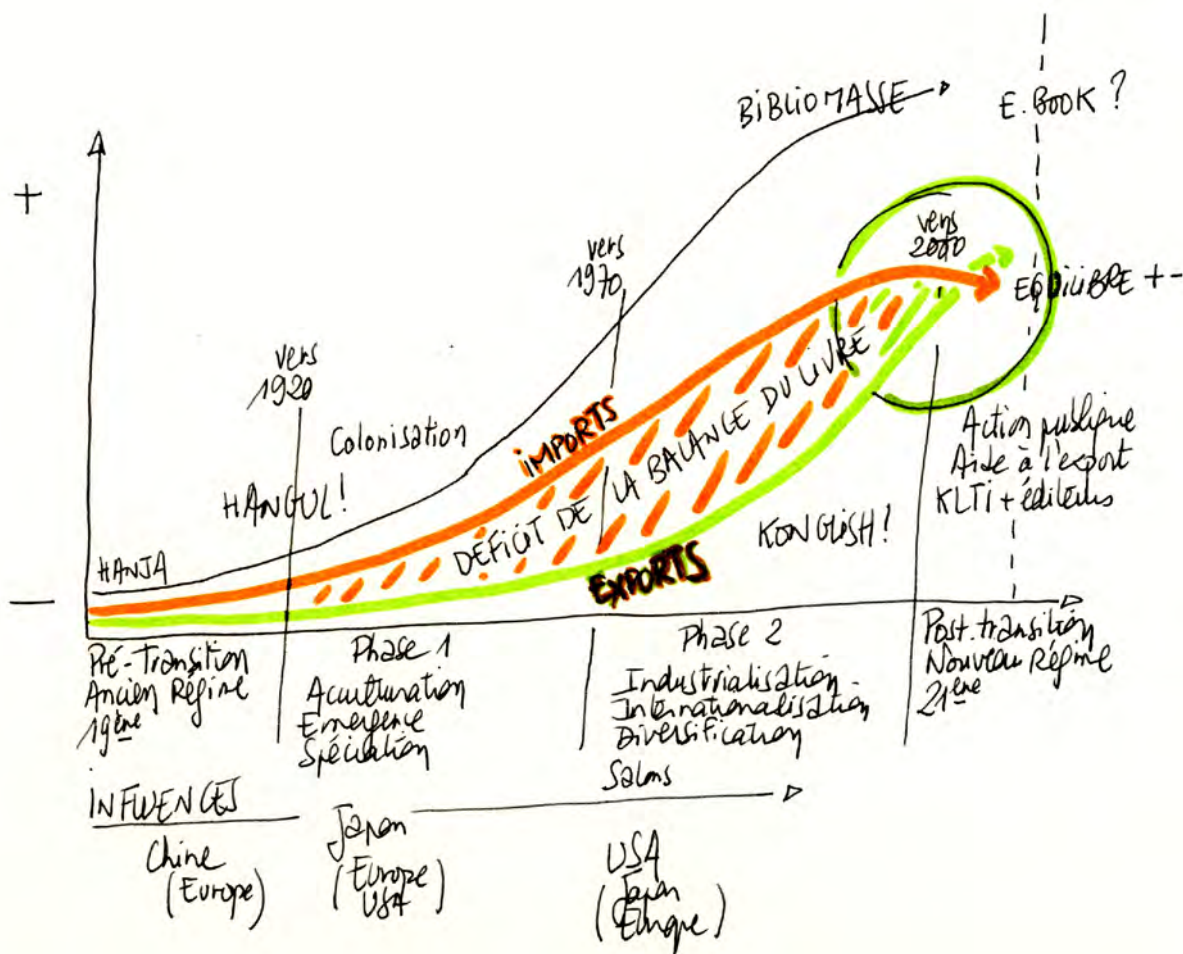 BiBLiOMASSE
E. BOOK ?
+
vers
2000
vers
1970
EQUiLiBRE + -
vers
1920
Colonisation
iMPORTS
HANGUL !
DEFiCiT DE LA BALANCE DU LiVRE
Action publique
Aide à l'export
KLTi + éditeurs
KONGLiSH !
HANJA
EXPORTS
—
Pré-Transition
Ancien Régime
19ème
Phase 1
Aculturation
Emergence
Spéciation
Phase 2
Industrialisation
Internationalisation
Diversification
Salons
Post. transition
Nouveau Régime
21ème
iNFLUENCES
Chine
(Europe)
Japon
(Europe
USA)
USA
(Japon
Europe)